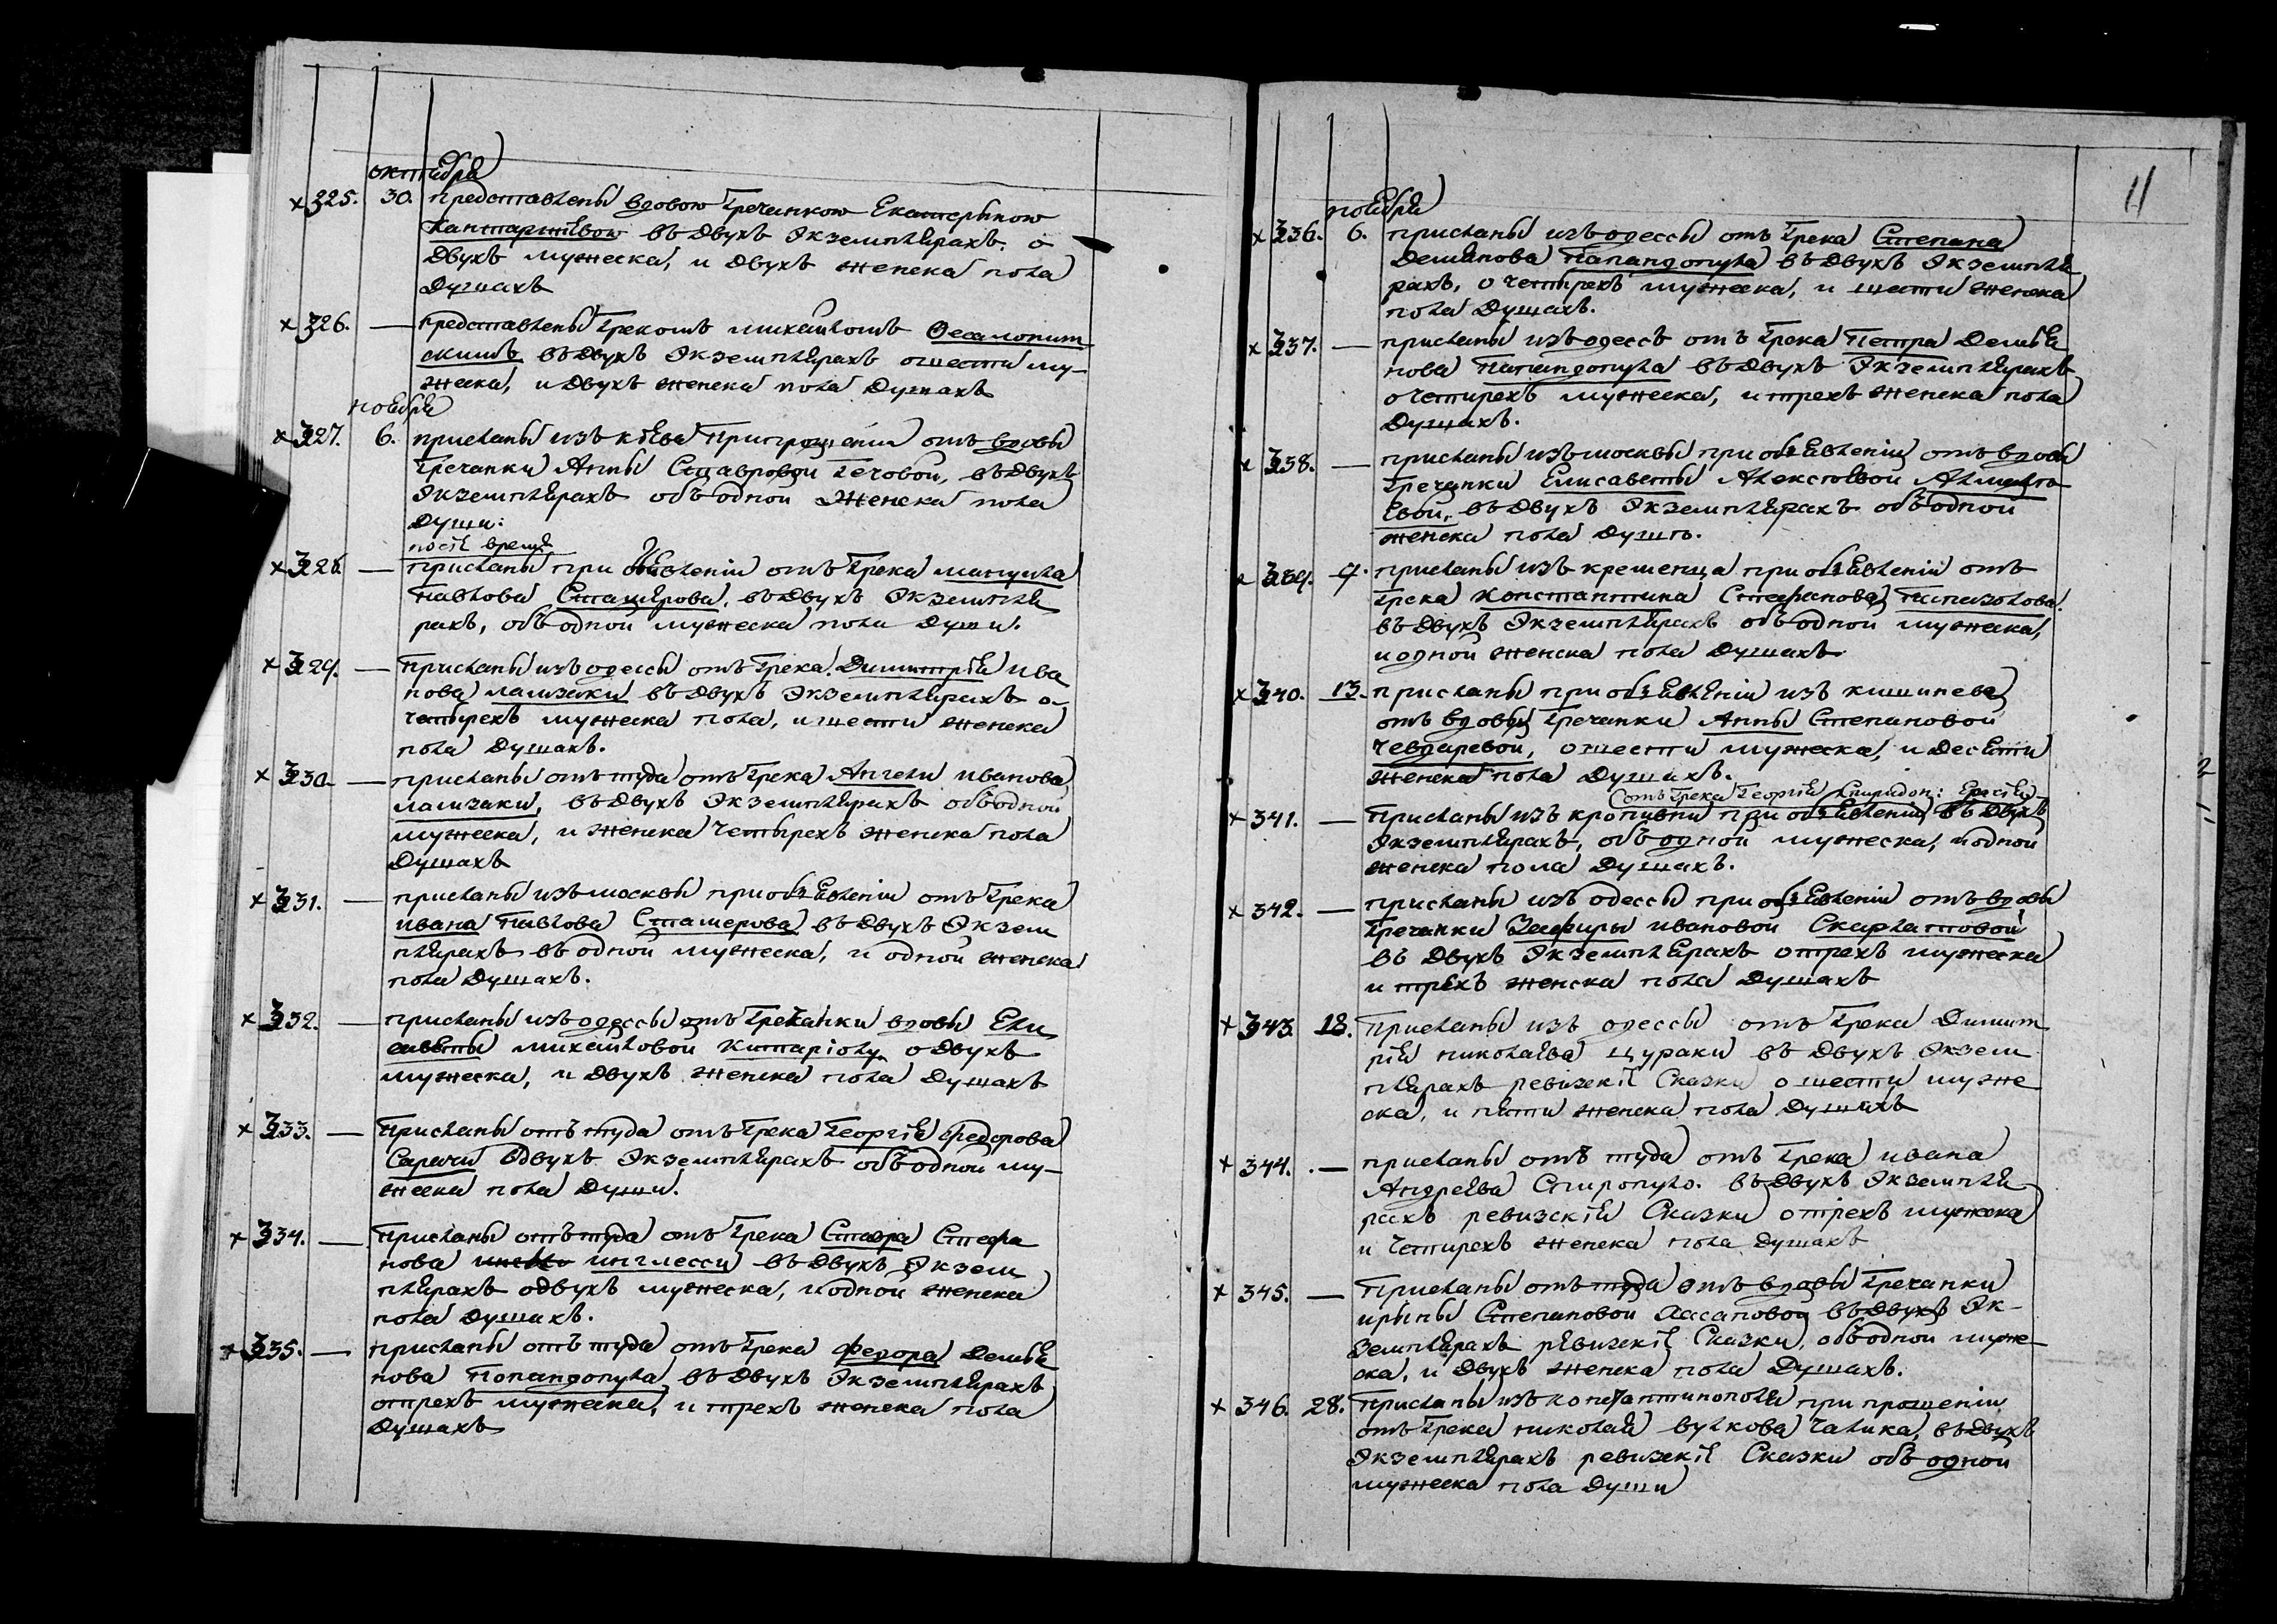 октября
×325. 30. представлены вдовою Гречанкою Екатериною
въ двухъ Экземплярахъ, о
двухъ мужеска, и двухъ женска пола
Душахъ
×326. — представлены Грекомъ михайломъ Фесалонит
скимъ въ двухъ Экземплярахъ ошести му-
жеска, и двухъ женска пола Душахъ
ноября
×327. 6. присланы изъ кіева при прошеніи отъ вдовы
Гречанки Анны Ставровой въ двухъ
Экземплярахъ объ одной женска пола
Души:
×328 — присланы при объявленіи отъ Грека мануила
павлова въ двухъ Экземпля
рахъ, объ одной мужеска пола Души.
×329. — присланы изъ одессы отъ Грека Димитрія ива
нова ламзаки въ двухъ Экземплярахъ о-
четырехъ мужеска пола, и шести женска
пола Душахъ.
×330 — присланы отъ туда отъ Грека Ангели иванова
ламзаки, въ двухъ Экземплярахъ объ одной
мужеска, и женска четырехъ женска пола
Душахъ
×331. — присланы изъ москвы при объявленіи отъ Грека
ивана павлова Стамерова въ двухъ Экзем
плярахъ въ одной мужеска, и одной женска
пола Душахъ.
×332. — присланы изъ одессы отъ Гречанки вдовы Ели
саветы михайловой о двухъ
мужеска, и двухъ женска пола Душахъ
×333. — присланы отъ туда отъ Грека Георгія Федорова
вдвухъ Экземплярахъ объ одной му-
жеска пола Души.
×334. — присланы отъ туда отъ Грека Ставра Стефа
нова инглесси въ двухъ Экзем
плярахъ о двухъ мужеска, и одной женска
пола Душахъ.
×335. — присланы отъ туда отъ Грека Федора Демья
нова Попандопула въ двухъ Экземплярахъ
о трехъ мужеска, и трехъ женска пола
Душахъ
11
ноября
×336. 6. присланы изъ одессы отъ Грека Степана
Демянова Папандопула въ двухъ Экземпля
рахъ, о четырехъ мужеска, и шести женска
пола Душахъ.
×337. — присланы изъ одессъ отъ Грека Петра Демья
нова Папандопула въ двухъ Экземплярахъ
о четырехъ мужеска, и трехъ женска пола
Душахъ.
×338. — присланы изъ москвы при объявленіи отъ вдовы
Гречанки Елисаветы Алексеевой
въ двухъ Экземплярахъ объ одной
женска пола душѣ.
×339. 7. присланы изъ кременца при объявленіи отъ
Грека Константина Стефанова
въ двухъ Экземплярахъ объ одной мужеска,
и одной женска пола Душахъ
×340. 13. присланы при объявленіи изъ кишинева
отъ вдовы Гречанки Анны Степановой
Чевдаревой, о шести мужеска, и десяти
женска пола Душахъ.
отъ Грека Георгія Спиридон:
×341. — присланы изъ кропивни при объявленіи въ двухъ
Экземплярахъ, объ одной мужеска, и одной
женска пола Душахъ.
×342. — присланы изъ одессы при объявленіи отъ вдовы
Гречанки Замфиры ивановой Скарлатовой
въ двухъ Экземплярахъ о трехъ мужеска
и трехъ женска пола Душахъ
×343. 18. присланы изъ одессы отъ Грека Димит
рія николаева цураки въ двухъ Экзем
плярахъ ревизскія Сказки о шести муже
ска, и пяти женска пола Душахъ
×344. — присланы отъ туда отъ Грека ивана
Андреева Спиропуло. въ двухъ Экземпля
рахъ ревизскія Сказки о трехъ мужеска
и четырехъ женска пола Душахъ
×345. — присланы отъ туда отъ вдовы Гречанки
ирины Степановой въ двухъ Эк-
земплярахъ ревизскія Сказки, объ одной муже-
ска, и двухъ женска пола Душахъ.
×346. 28. присланы изъ константинополя при прошеніи
отъ Грека николая вулкова Чалика, въ двухъ
Экземплярахъ ревизскія Сказки объ одной
мужеска пола Души